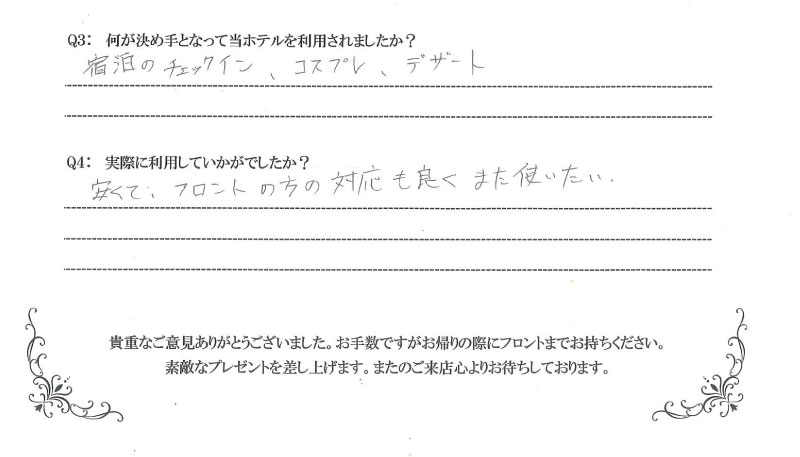 Q3: 何が決め手となって当ホテルを利用されましたか？
宿泊のチェックイン、コスプレ、デザート
Q4: 実際に利用していかがでしたか？
安くて、フロントの方の対応も良くまた使いたい.
貴重なご意見ありがとうございました。お手数ですがお帰りの際にフロントまでお持ちください。
素敵なプレゼントを差し上げます。またのご来店心よりお待ちしております。